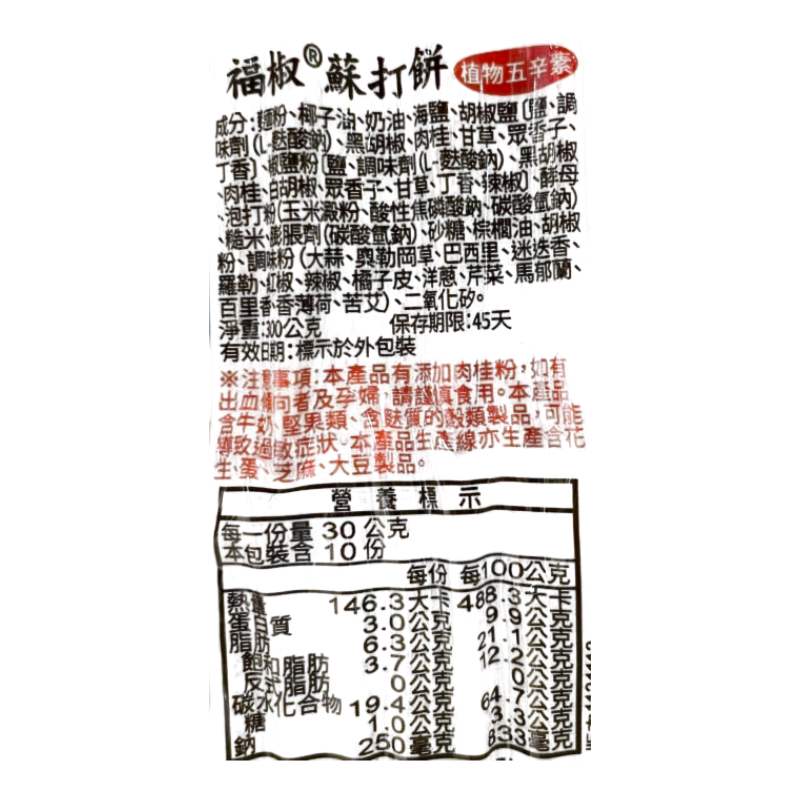 福椒®蘇打餅 植物五辛素
成分:麵粉、椰子油、奶油、海鹽、胡椒鹽〔鹽、調
味劑(L-麩酸鈉)、黑胡椒、肉桂、甘草、眾香子、
丁香〕、椒鹽粉〔鹽、調味劑(L-麩酸鈉)、黑胡椒
、肉桂、白胡椒、眾香子、甘草、丁香、辣椒〕、酵母
、泡打粉(玉米澱粉、酸性焦磷酸鈉、碳酸氫鈉)
、糙米、膨脹劑(碳酸氫鈉)、砂糖、棕櫚油、胡椒
粉、調味粉(大蒜、奧勒岡草、巴西里、迷迭香、
羅勒、紅椒、辣椒、橘子皮、洋蔥、芹菜、馬郁蘭、
百里香、香薄荷、苦艾)、二氧化矽。
淨重:300公克 保存期限:45天
有效日期:標示於外包裝
※注意事項:本產品有添加肉桂粉,如有
出血傾向者及孕婦,請謹慎食用。本產品
含牛奶、堅果類、含麩質的穀類製品,可能
導致過敏症狀。本產品生產線亦生產含花
生、蛋、芝麻、大豆製品。
營養標示
每一份量 30 公克
本包裝含 10 份
每份 每100公克
熱量 146.3大卡 488.3大卡
蛋白質 3.0公克 9.9公克
脂肪 6.3公克 21.1公克
飽和脂肪 3.7公克 12.2公克
反式脂肪 0公克 0公克
碳水化合物 19.4公克 64.7公克
糖 1.0公克 3.3公克
鈉 250毫克 833毫克